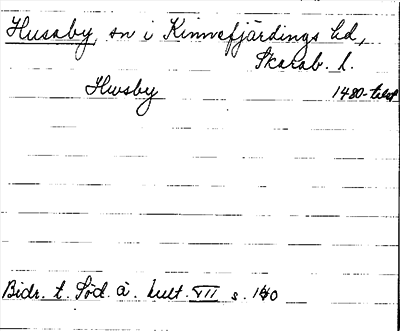 Husaby, sn i Kinnefjärdings hd,
Skarab. l.
Hwsby 1480-talet
Bidr. t. Söd. å. kult. VII s. 140